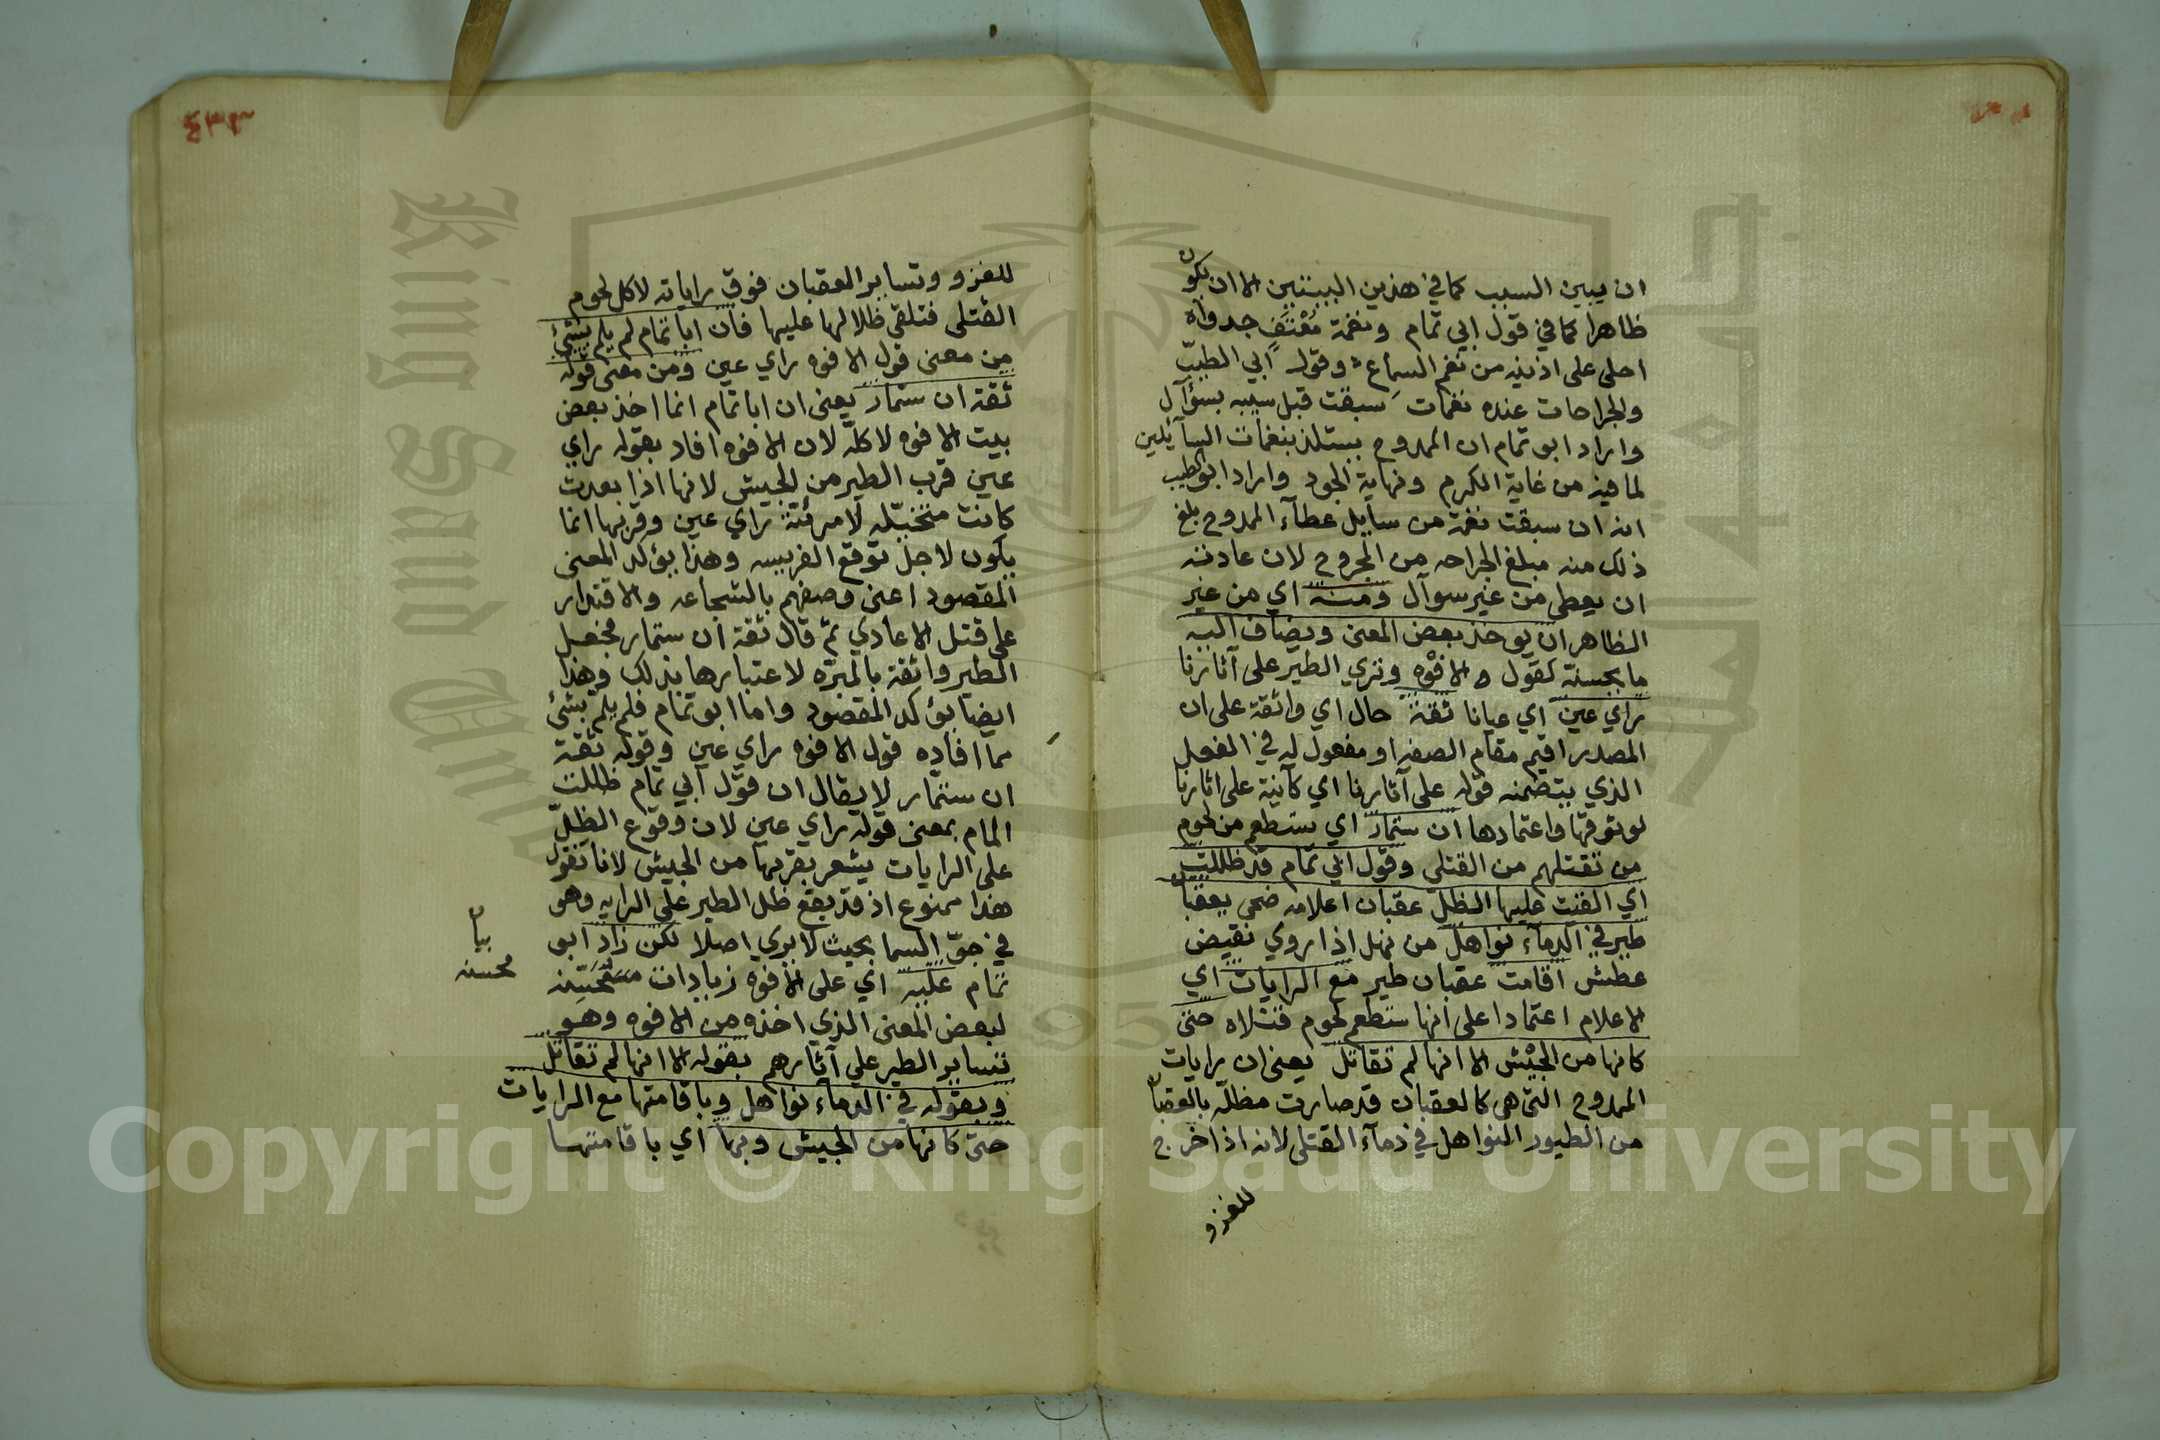 ان يبين السبب كما في هذين البيتين الا ان يكون
ظاهرا كما في قول ابي تمام ونغمة مُعْتَفٍ جدواه
احلى على اذنيه من نغم السماع وقول ابي الطيب
والجراحات عنده نغمات سبقت قبل سيبه بسؤآل
واراد ابو تمام ان الممدوح يستلذ بنغمات السآئلين
لما فيه من غاية الكرم ونهاية الجود واراد ابو الطيب
انه ان سبقت نغمة من سايل عطآء الممدوح بلغ
ذلك منه مبلغ الجراحه من المجروح لان عادته
ان يعطى من غير سوآل ومنه اي من غير
الظاهر ان يوخذ بعض المعنى ويضاف اليه
ما يحسنه كقول الافوه وترى الطير على آثارنا
راي عين اي عيانا ثقة حال اي واثقة على ان
المصدر اقيم مقام الصفه او مفعول له في الفعل
الذي يتضمنه قوله على آثارنا اي كآئنة على اثارنا
لوثوقها واعتمادها ان ستمار اي ستطعم من لحوم
من نقتلهم من القتلى وقول ابي تمام قد ظللت
اي القت عليها الظل عقبان اعلامه ضحى بعقبان
طير في الدمآء نواهل من نهل اذا روي نقيض
عطش اقامت عقبان طير مع الرايات اي
الاعلام اعتمادا على انها ستطعم لحوم قتلاه حتى
كانها من الجيش الا انها لم تقاتل يعنى ان رايات
الممدوح التى هى كالعقبان قد صارت مظللة بالعقبان
من الطيور النواهل في دمآء القتلى لانه اذا خرج
للغزو
٤٣٣
للغزو وتساير العقبان فوق راياته لاكل لحوم
القتلى فتلقى ظلالها عليها فان ابا تمام لم يلم بشئ
من معنى قول الافوه راي عين ومن معنى قوله
ثقة ان ستمار يعنى ان ابا تمام انما اخذ بعض
بيت الافوه لا كلّه لان الافوه افاد بقوله راي
عين قرب الطير من الجيش لانها اذا بعدت
كانت متخيّله لا مرئية راي عين وقربها انما
يكون لاجل توقع الفريسه وهذا يؤكد المعنى
المقصود اعنى وصفهم بالشجاعه والاقتدار
على قتل الاعادي ثم قال ثقة ان ستمار فجعل
الطير واثقة بالميره لاعتيارها بذلك وهذا
ايضا يؤكد المقصود واما ابو تمام فلم يلم بشئ
مما افاده قول الافوه راي عين وقوله ثقة
ان ستمار لا يقال ان قول ابي تمام ظللت
المام بمعنى قوله راي عين لان وقوع الظلّ
على الرايات يشعر بقربها من الجيش لانا نقول
هذا ممنوع اذ قد يقع ظل الطير على الرايه وهو
في جوّ السما بحيث لا يرى اصلا لكن زاد ابو
تمام عليه اي على الافوه زيادات محسّنة
لبعض المعنى الذي اخذه من الافوه وهو
تساير الطير على آثارهم بقوله الا انها لم تقاتل
وبقوله في الدماء نواهل وباقامتها مع الرايات
حتى كانها من الجيش وبها اي باقامتها
محسنه